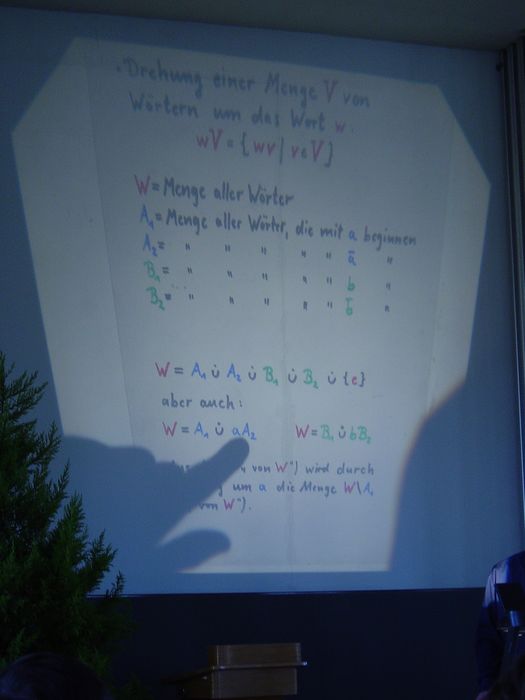 • Drehung einer Menge V von
Wörtern um das Wort w:
wV = {wv | v ϵ V}
W = Menge aller Wörter
A₁ = Menge aller Wörter, die mit a beginnen
A₂ = " " " " " ā "
B₁ = " " " " " b "
B₂ = " " " " " b̄ "
W = A₁ ∪̇ A₂ ∪̇ B₁ ∪̇ B₂ ∪̇ {e}
aber auch:
W = A₁ ∪̇ aA₂ W = B₁ ∪̇ bB₂
von W") wird durch
um a die Menge W\A₁
von W").